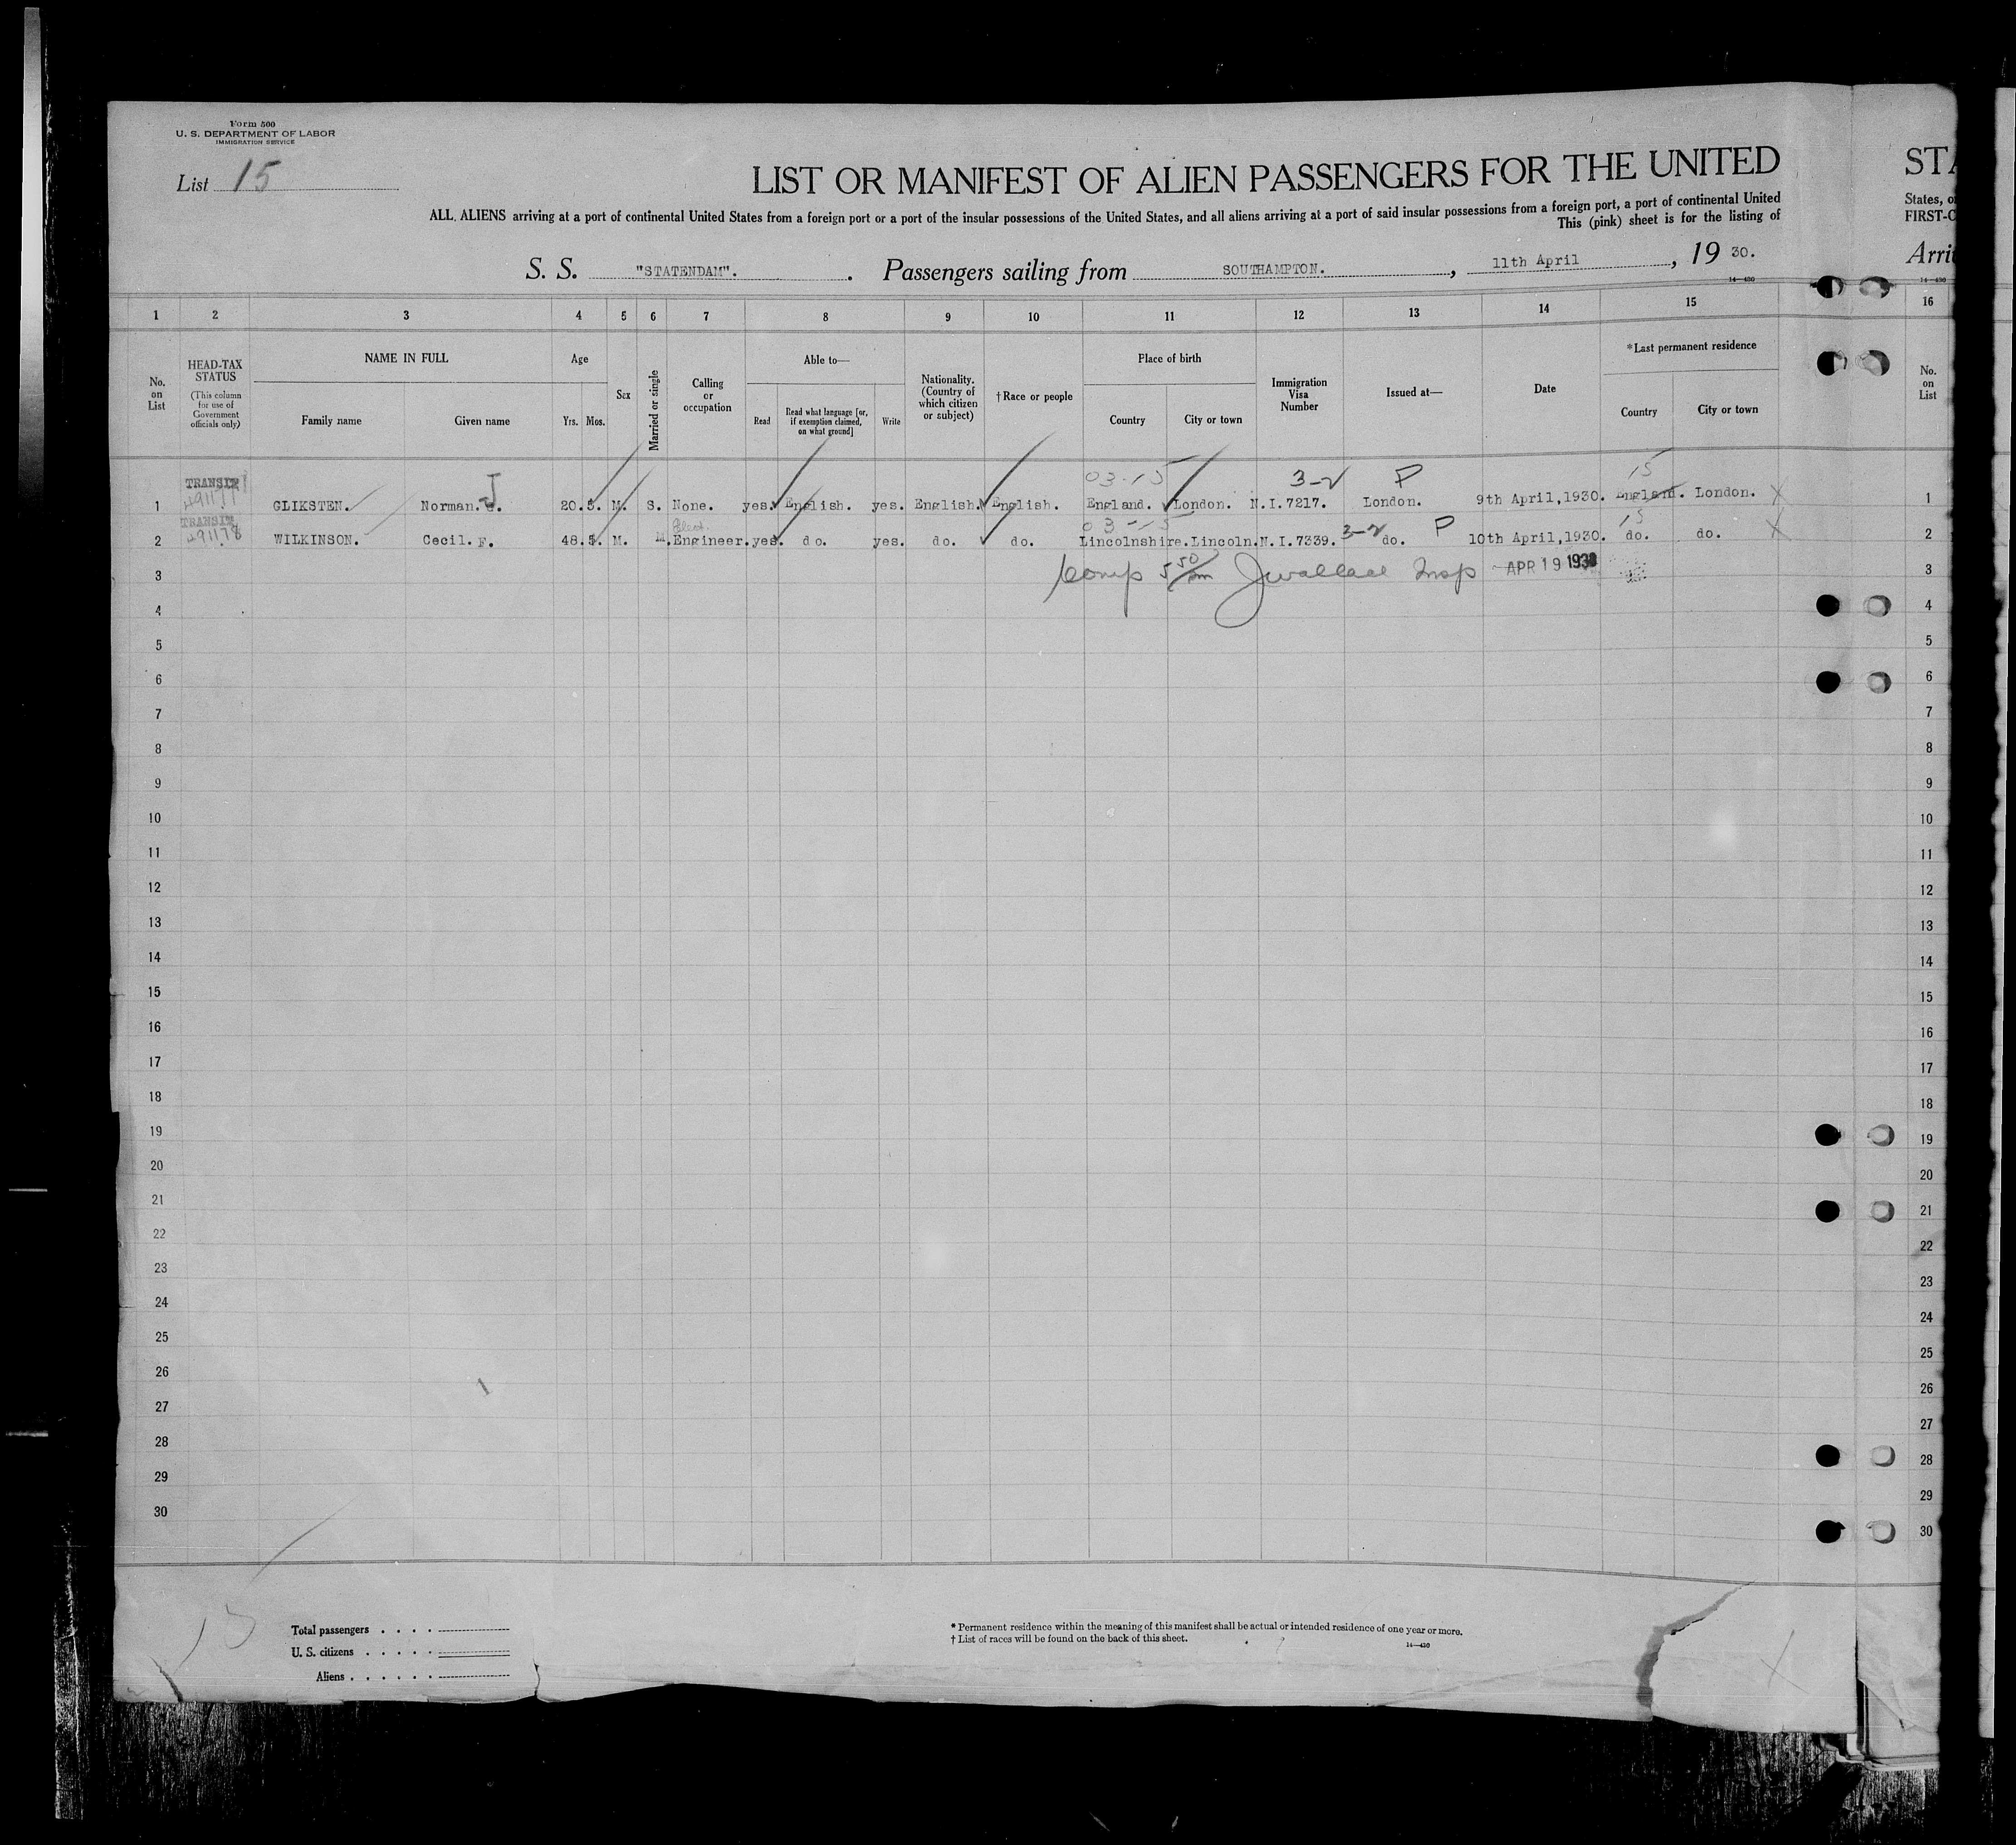 Form 500
U. S. DEPARTMENT OF LABOR
IMMIGRATION SERVICE
List 15
LIST OR MANIFEST OF ALIEN PASSENGERS FOR THE UNITED
STA
ALL ALIENS arriving at a port of continental United States from a foreign port or a port of the insular possessions of the United States, and all aliens arriving at a port of said insular possessions from a foreign port, a port of continental United
States, o
This (pink) sheet is for the listing of
FIRST-C
S. S. "STATENDAM". . Passengers sailing from SOUTHAMPTON. , 11th April , 19 30.
Arri
14—430
14—430
1 2 3 4 5 6 7 8 9 10 11 12 13 14 15 16
No. on List
HEAD-TAX STATUS
(This column for use of Government officials only)
NAME IN FULL
Family name Given name
Age
Yrs. Mos.
Sex
Married or single
Calling or occupation
Able to—
Read
Read what language [or, if exemption claimed, on what ground]
Write
Nationality. (Country of which citizen or subject)
† Race or people
Place of birth
Country City or town
Immigration Visa Number
Issued at—
Date
* Last permanent residence
Country City or town
No. on List
TRANSIT 03-15 3-2 P 15
1 49117 GLIKSTEN. Norman. J. 20.5. M. S. None. yes. English. yes. English. English. England. London. N.I.7217. London. 9th April,1930. England. London. X 1
TRANSIT 03-15 3-2 P 15
2 491178 WILKINSON. Cecil. F. 48.5. M. M. Engineer. yes. do. yes. do. do. Lincolnshire. Lincoln. N.I.7339. do. 10th April,1930. do. do. X 2
3 Comp 5 50/pm JWallace Insp APR 19 1930 3
4 4
5 5
6 6
7 7
8 8
9 9
10 10
11 11
12 12
13 13
14 14
15 15
16 16
17 17
18 18
19 19
20 20
21 21
22 22
23 23
24 24
25 25
26 26
27 27
28 28
29 29
30 30
Total passengers . . . .
U. S. citizens . . . . .
Aliens . . . . . .
* Permanent residence within the meaning of this manifest shall be actual or intended residence of one year or more.
† List of races will be found on the back of this sheet.
14—430